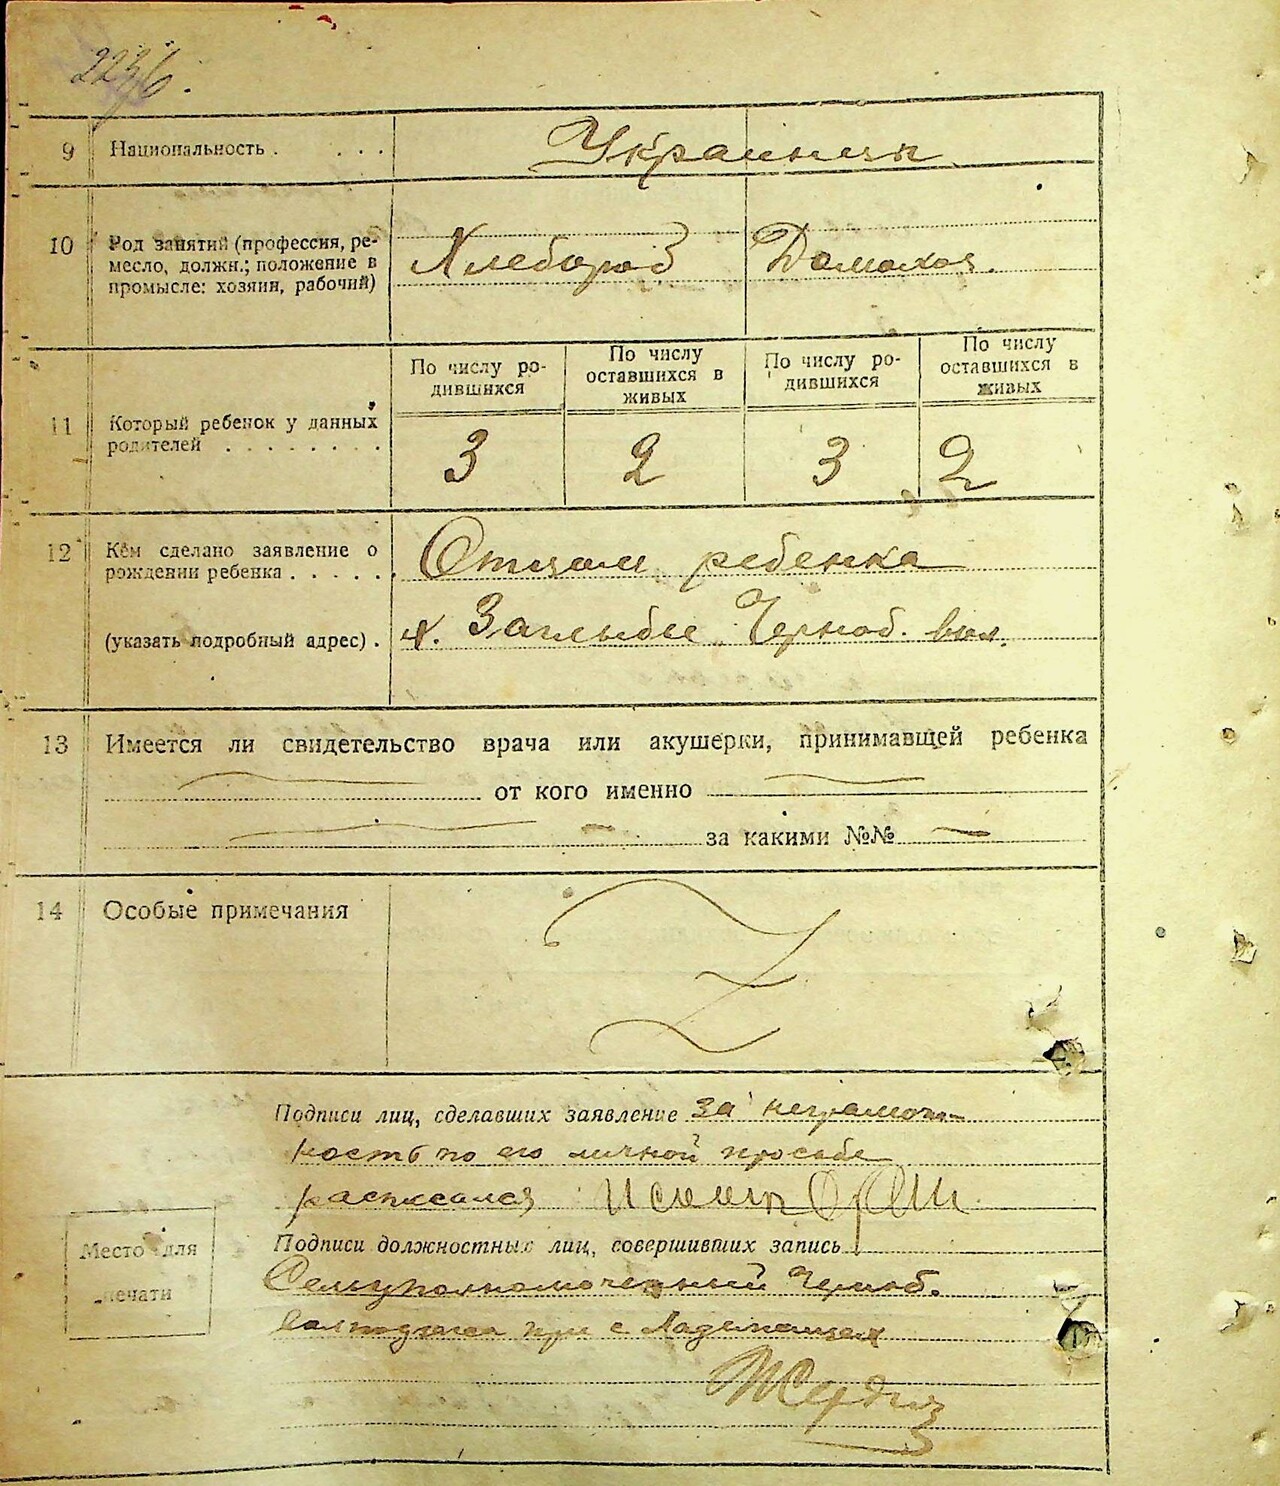 223/6.
9 Национальность . . . . Украинцы
10 Род занятий (профессия, ре-
месло, должн.; положение в
промысле: хозяин, рабочий)
Хлебороб Домохоз.
По числу ро-
дившихся
По числу
оставшихся в
живых
По числу ро-
дившихся
По числу
оставшихся в
живых
11 Который ребенок у данных
родителей . . . . . . . .
3 2 3 2
12 Кем сделано заявление о
рождении ребенка . . . . . Отцом ребенка
(указать подробный адрес) . х. Заглыбы Черноб. вол.
13 Имеется ли свидетельство врача или акушерки, принимавшей ребенка
от кого именно
за какими №№
14 Особые примечания
Подписи лиц, сделавших заявление за неграмот-
ность по его личной просьбе
расписался
Место для
печати
Подписи должностных лиц, совершивших запись
Сельуполномоченный Черноб.
при с.